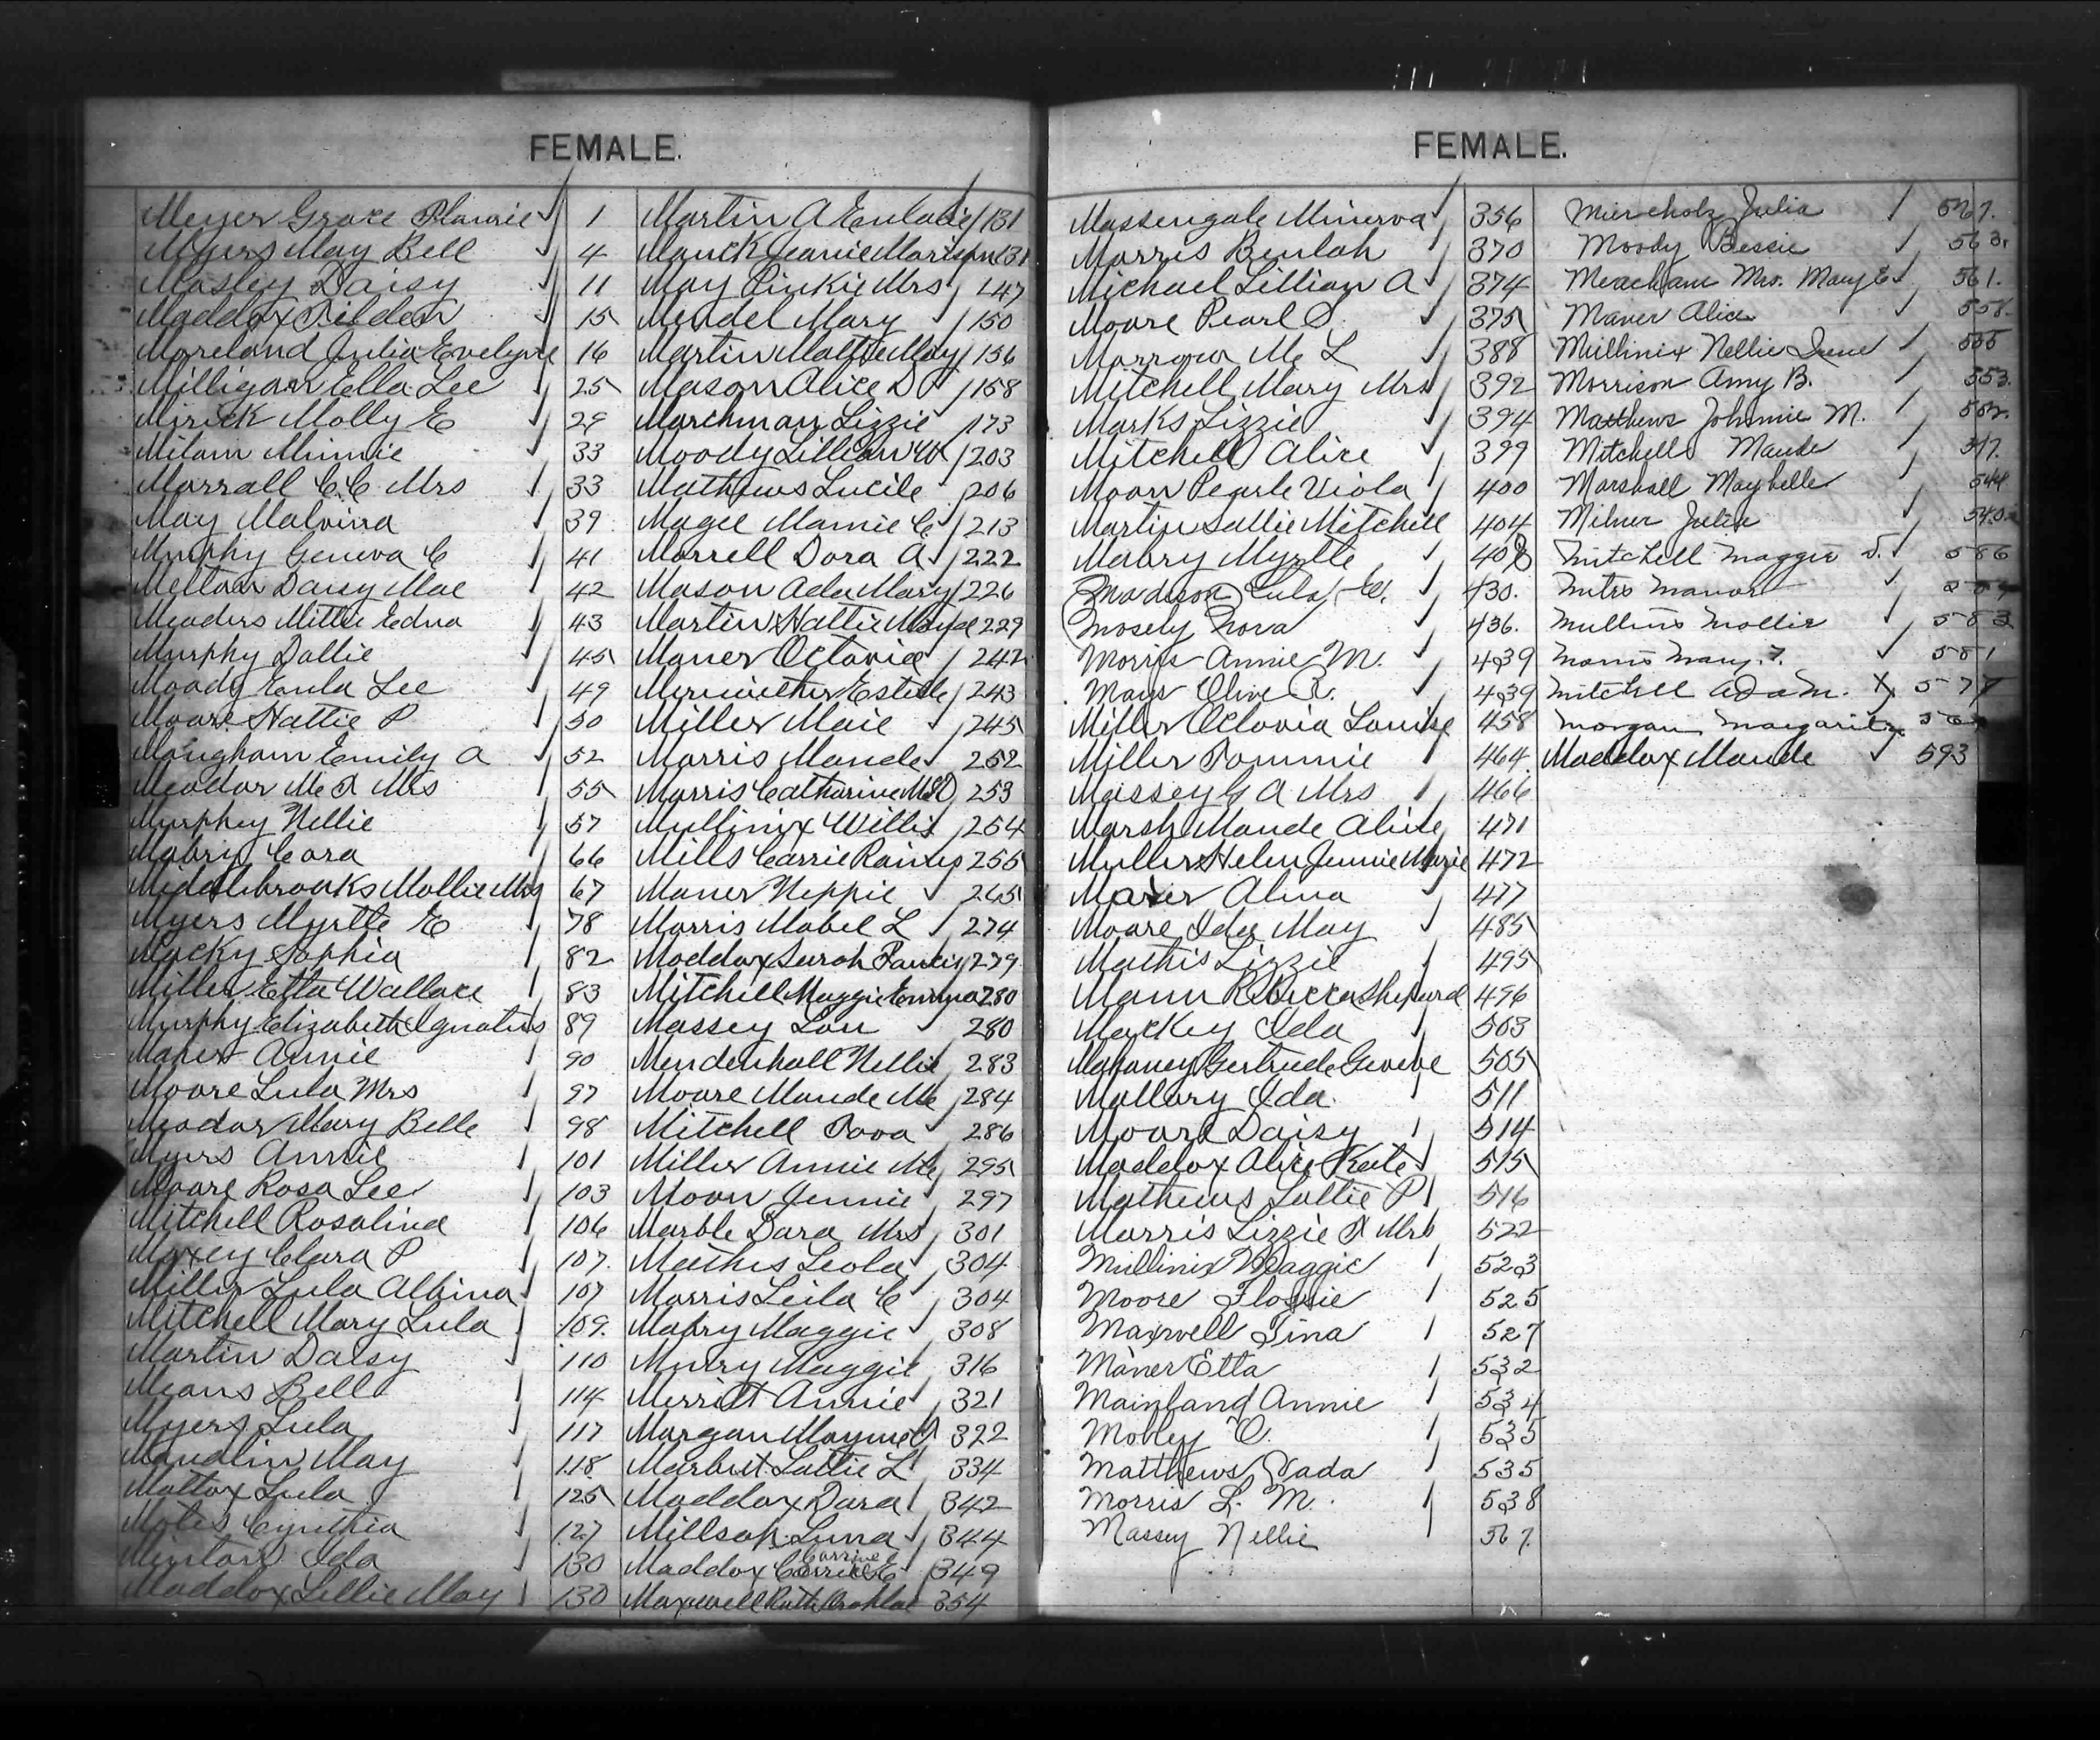 FEMALE.
Meyer Grace 1
Myers May Bell 4
Mosley Daisy 11
Maddox Tilden 15
Moreland Julia Evelyne 16
Milligan Ella Lee 25
Mirick Molly E 29
Milam Minnie 33
Morrall C.C. Mrs 33
May Malvina 39
Murphy Geneva C 41
Melton Daisy Mae 42
Meaders Mittie Edna 43
Murphy Dollie 45
Moody Eula Lee 49
Moore Hattie P 50
Maugham Emily A 52
Meador Mrs 55
Murphey Nellie 57
Mabry Cora 66
Middlebrooks Mollie Mrs 67
Myers Myrtle E 78
Macky Sophia 82
Miller Etta Wallace 83
Murphy Elizabeth Ignatius 89
Maner Annie 90
Moore Lula Mrs 97
Meador Mary Belle 98
Myers Annie 101
Moore Rosa Lee 103
Mitchell Rosalind 106
Maxey Clara P 107.
Miller Lula Albina 107
Mitchell Mary Lula 109.
Martin Daisy 110
Means Bell 114
Myers Lula 117
Maudlin May 118
Mattox Lula 125
Motes Cynthia 127
Minton Ida 130
Maddox Lillie May 130
Martin A Eulalie 131
Mauck Jeanie 131
May Pinkie Mrs 147
Mendel Mary 150
Martin Mattie May 156
Mason Alice D P 158
Marchman Lizzie 173
Moody Lillian W 203
Mathews Lucile 206
Magee Mamie C 213
Morrell Dora A 222
Mason Ada Mary 226
Martin Hattie 229
Maner Octavia 242
Meriwether Estelle 243
Miller Maie 245
Morris Maude 252
Morris Catharine 253
Mullinix Willis 254
Mills Carrie Raines 255
Maner Neppie 265
Morris Mabel L 274
Maddox Sarah 279
Mitchell Maggie Emma 280
Massey Lou 280
Mendenhall Nellie 283
Moore Maude Mc 284
Mitchell Tova 286
Miller Annie Mc 295
Moon Jennie 297
Marble Dara Mrs 301
Mathis Leola 304
Morris Leila C 304
Mabry Maggie 308
Murry Maggie 316
Merritt Annie 321
Morgan Mayme 322
Marbut Lottie L 334
Maddox Dora 342
Millsap Luna 344
Corrine
Maddox E 349
Maxwell Ruth 354
FEMALE.
Massengale Minerva 356
Morris Beulah 370
Michael Lillian A 374
Moore Pearl S. 375
Morrow M L 388
Mitchell Mary Mrs 392
Marks Lizzie 394
Mitchell Alice 399
Moon Pearle Viola 400
Martin Sallie Mitchell 404
Mabry Myrtle 408
Madison Lula W. 430.
Mosely Nora 436.
Morris Annie M. 439
Mays Olive R. 439
Miller Octavia Louise 458
Miller Tommie 464
Massey G A Mrs 466
Marsh Maude Alice 471
Muller Helen Jennie Marie 472
Maner Alma 477
Moore Ida May 485
Mathis Lizzie 495
Mann Rebecca Shepard 496
Mackey Ida 503
Mahaney Gertrude 505
Mallory Ida 511
Moore Daisy 514
Maddox Alice Kate 515
Mathews Lottie P 516
Morris Lizzie Mrs 522
Mullinix Maggie 523
Moore Flossie 525
Maxwell Tina 527
Maner Etta 532
Mainland Annie 534
Mobley O. 535
Matthews Vada 535
Morris L. M. 538
Massey Nellie 567.
Julia 567.
Moody Bessie 563.
Meacham Mrs. Mary E 561.
Maner Alice 558.
Mullinix Nellie Irene 555
Morrison Amy B. 553.
Matthews Johnnie M. 552.
Mitchell Maude
Marshall Maybelle 544
Milner Julia 540.
Mitchell Maggie 586
Mullins Mollie 583
Morris Mary 581
Mitchell Ada M. 577
Morgan
Maddox Maude 593